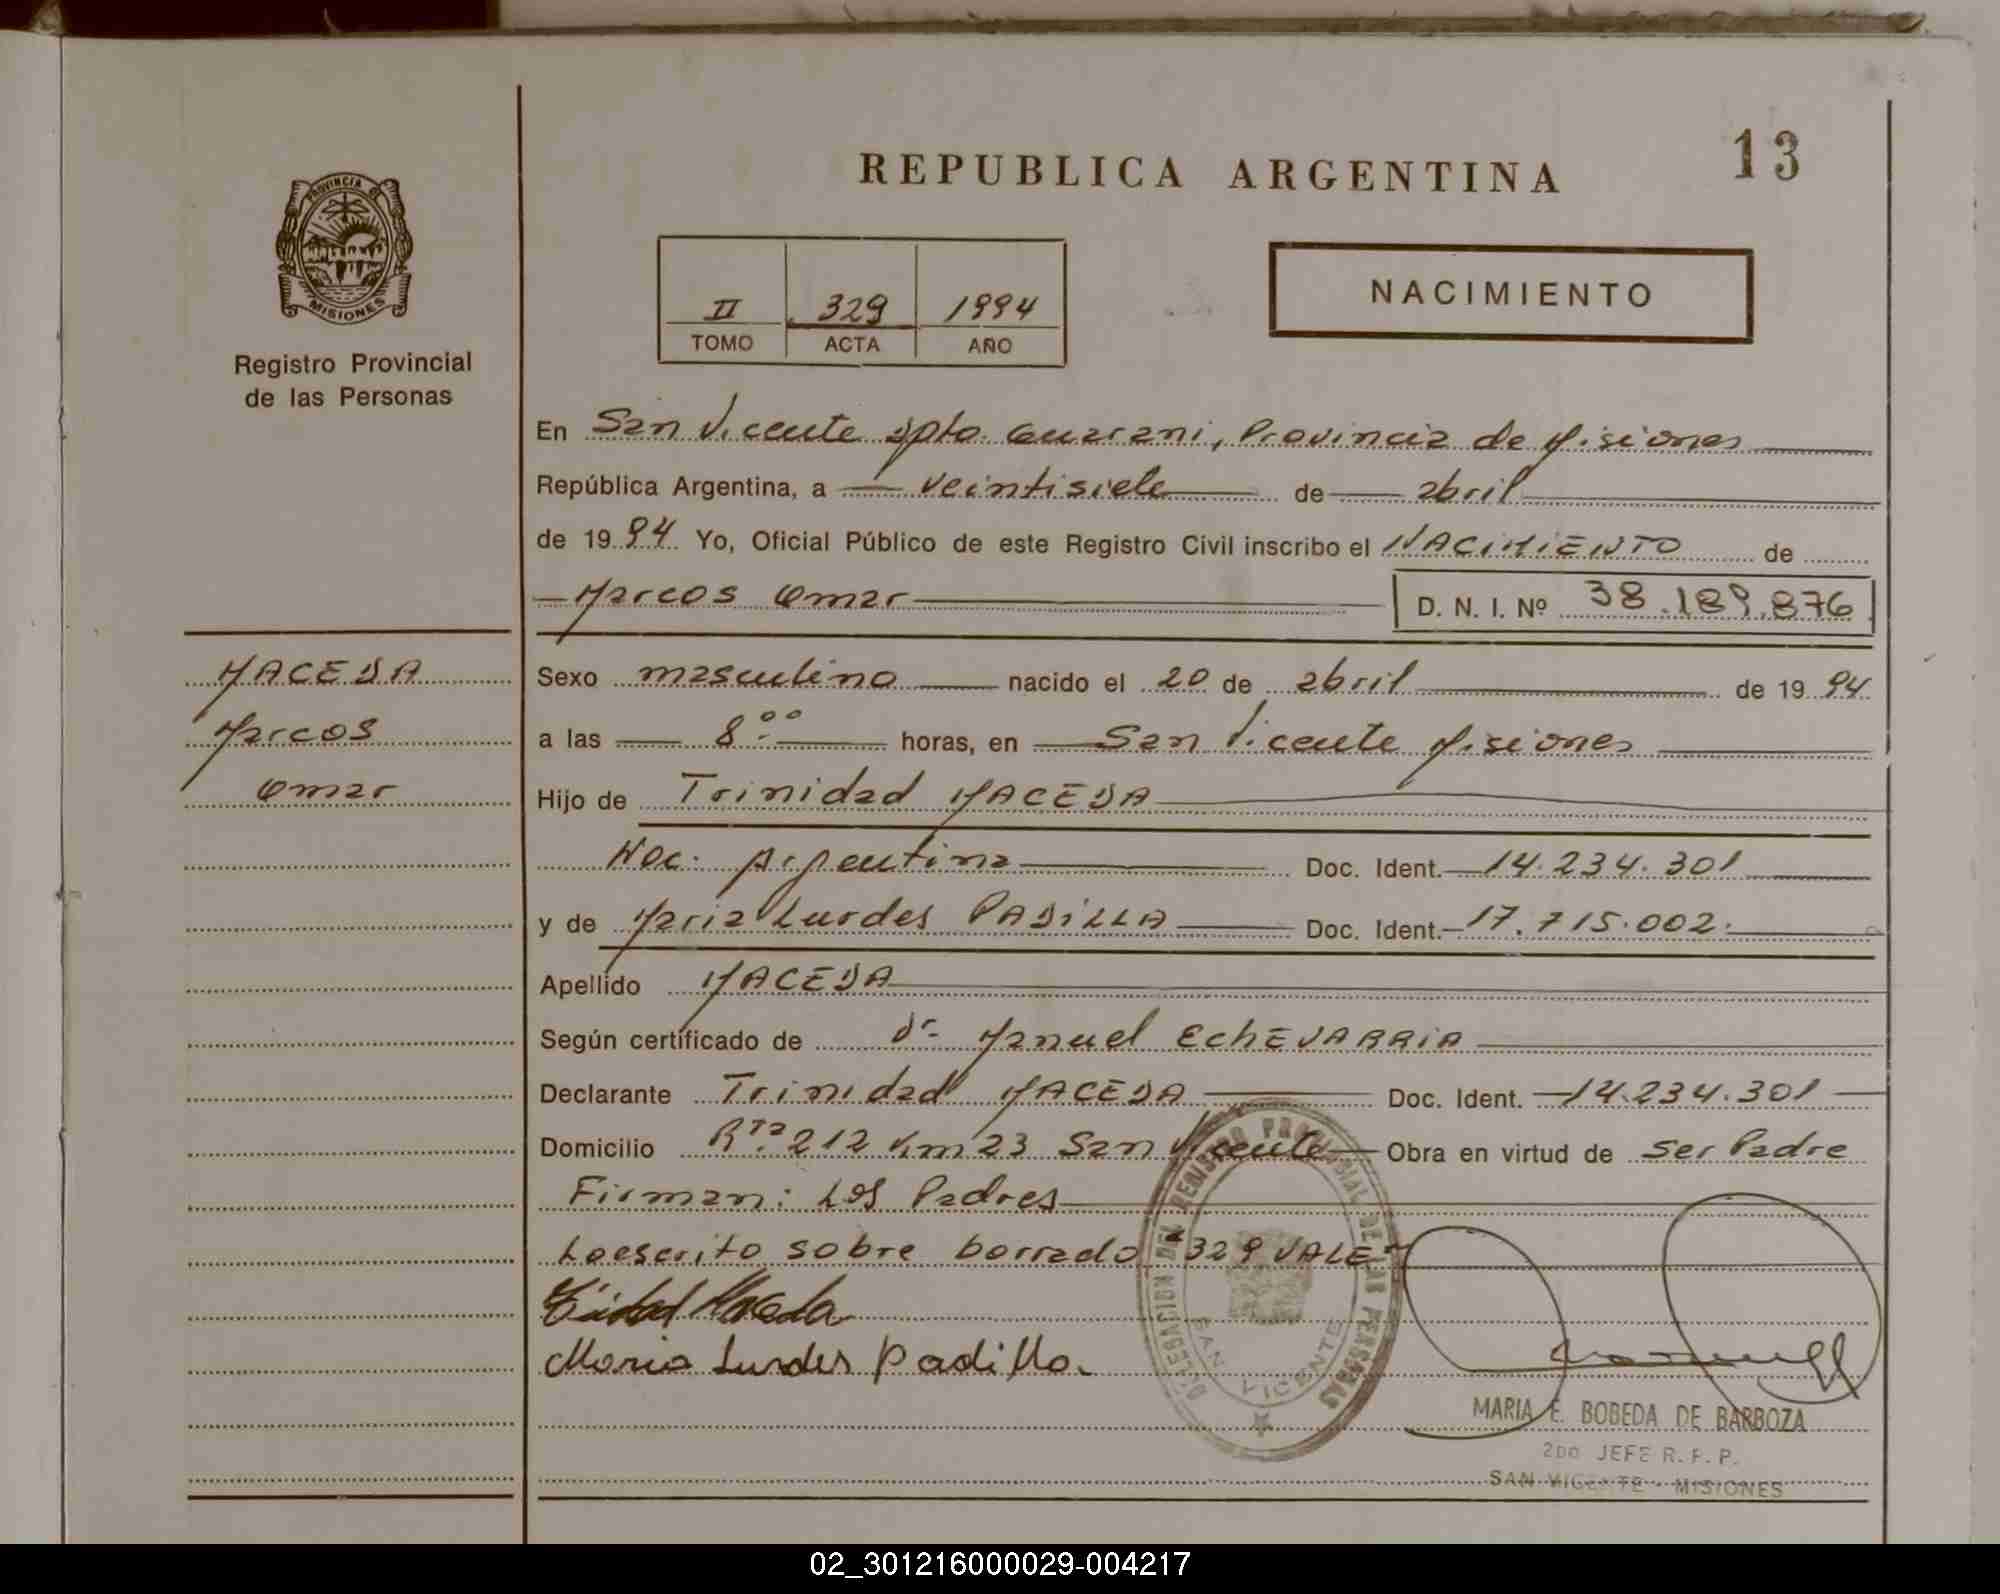 13
REPUBLICA ARGENTINA
PROVINCIA DE
MISIONES
Registro Provincial
de las Personas
II 329 1994
TOMO ACTA AÑO
NACIMIENTO
En San Vicente Dpto. Guarani, Provincia de Misiones
República Argentina, a veintisiete de abril
de 1994 Yo, Oficial Público de este Registro Civil inscribo el NACIMIENTO de
Marcos Omar D. N. I. Nº 38.189.876
MACEDA
Marcos
Omar
Sexo masculino nacido el 20 de abril de 1994
a las 8:00 horas, en San Vicente Misiones
Hijo de Trinidad MACEDA
Nac: Argentina Doc. Ident. 14.234.301
y de Maria Lurdes PADiLLA Doc. Ident. 17.715.002.
Apellido MACEDA
Según certificado de Dr. Manuel EchEVARRiA
Declarante Trinidad MACEDA Doc. Ident. 14.234.301
Domicilio Rta. 212 Km 23 San Vicente Obra en virtud de ser Padre
Firman: Los Padres
Lo escrito sobre borrado "329 VALE"
Maceda
Maria Lurdes Padilla.
DELEGACION DEL REGISTRO PROVINCIAL DE LAS PERSONAS
SAN VICENTE
MARIA E. BOBEDA DE BARBOZA
2DO JEFE R. P. P.
SAN VICENTE - MISIONES
02_301216000029-004217